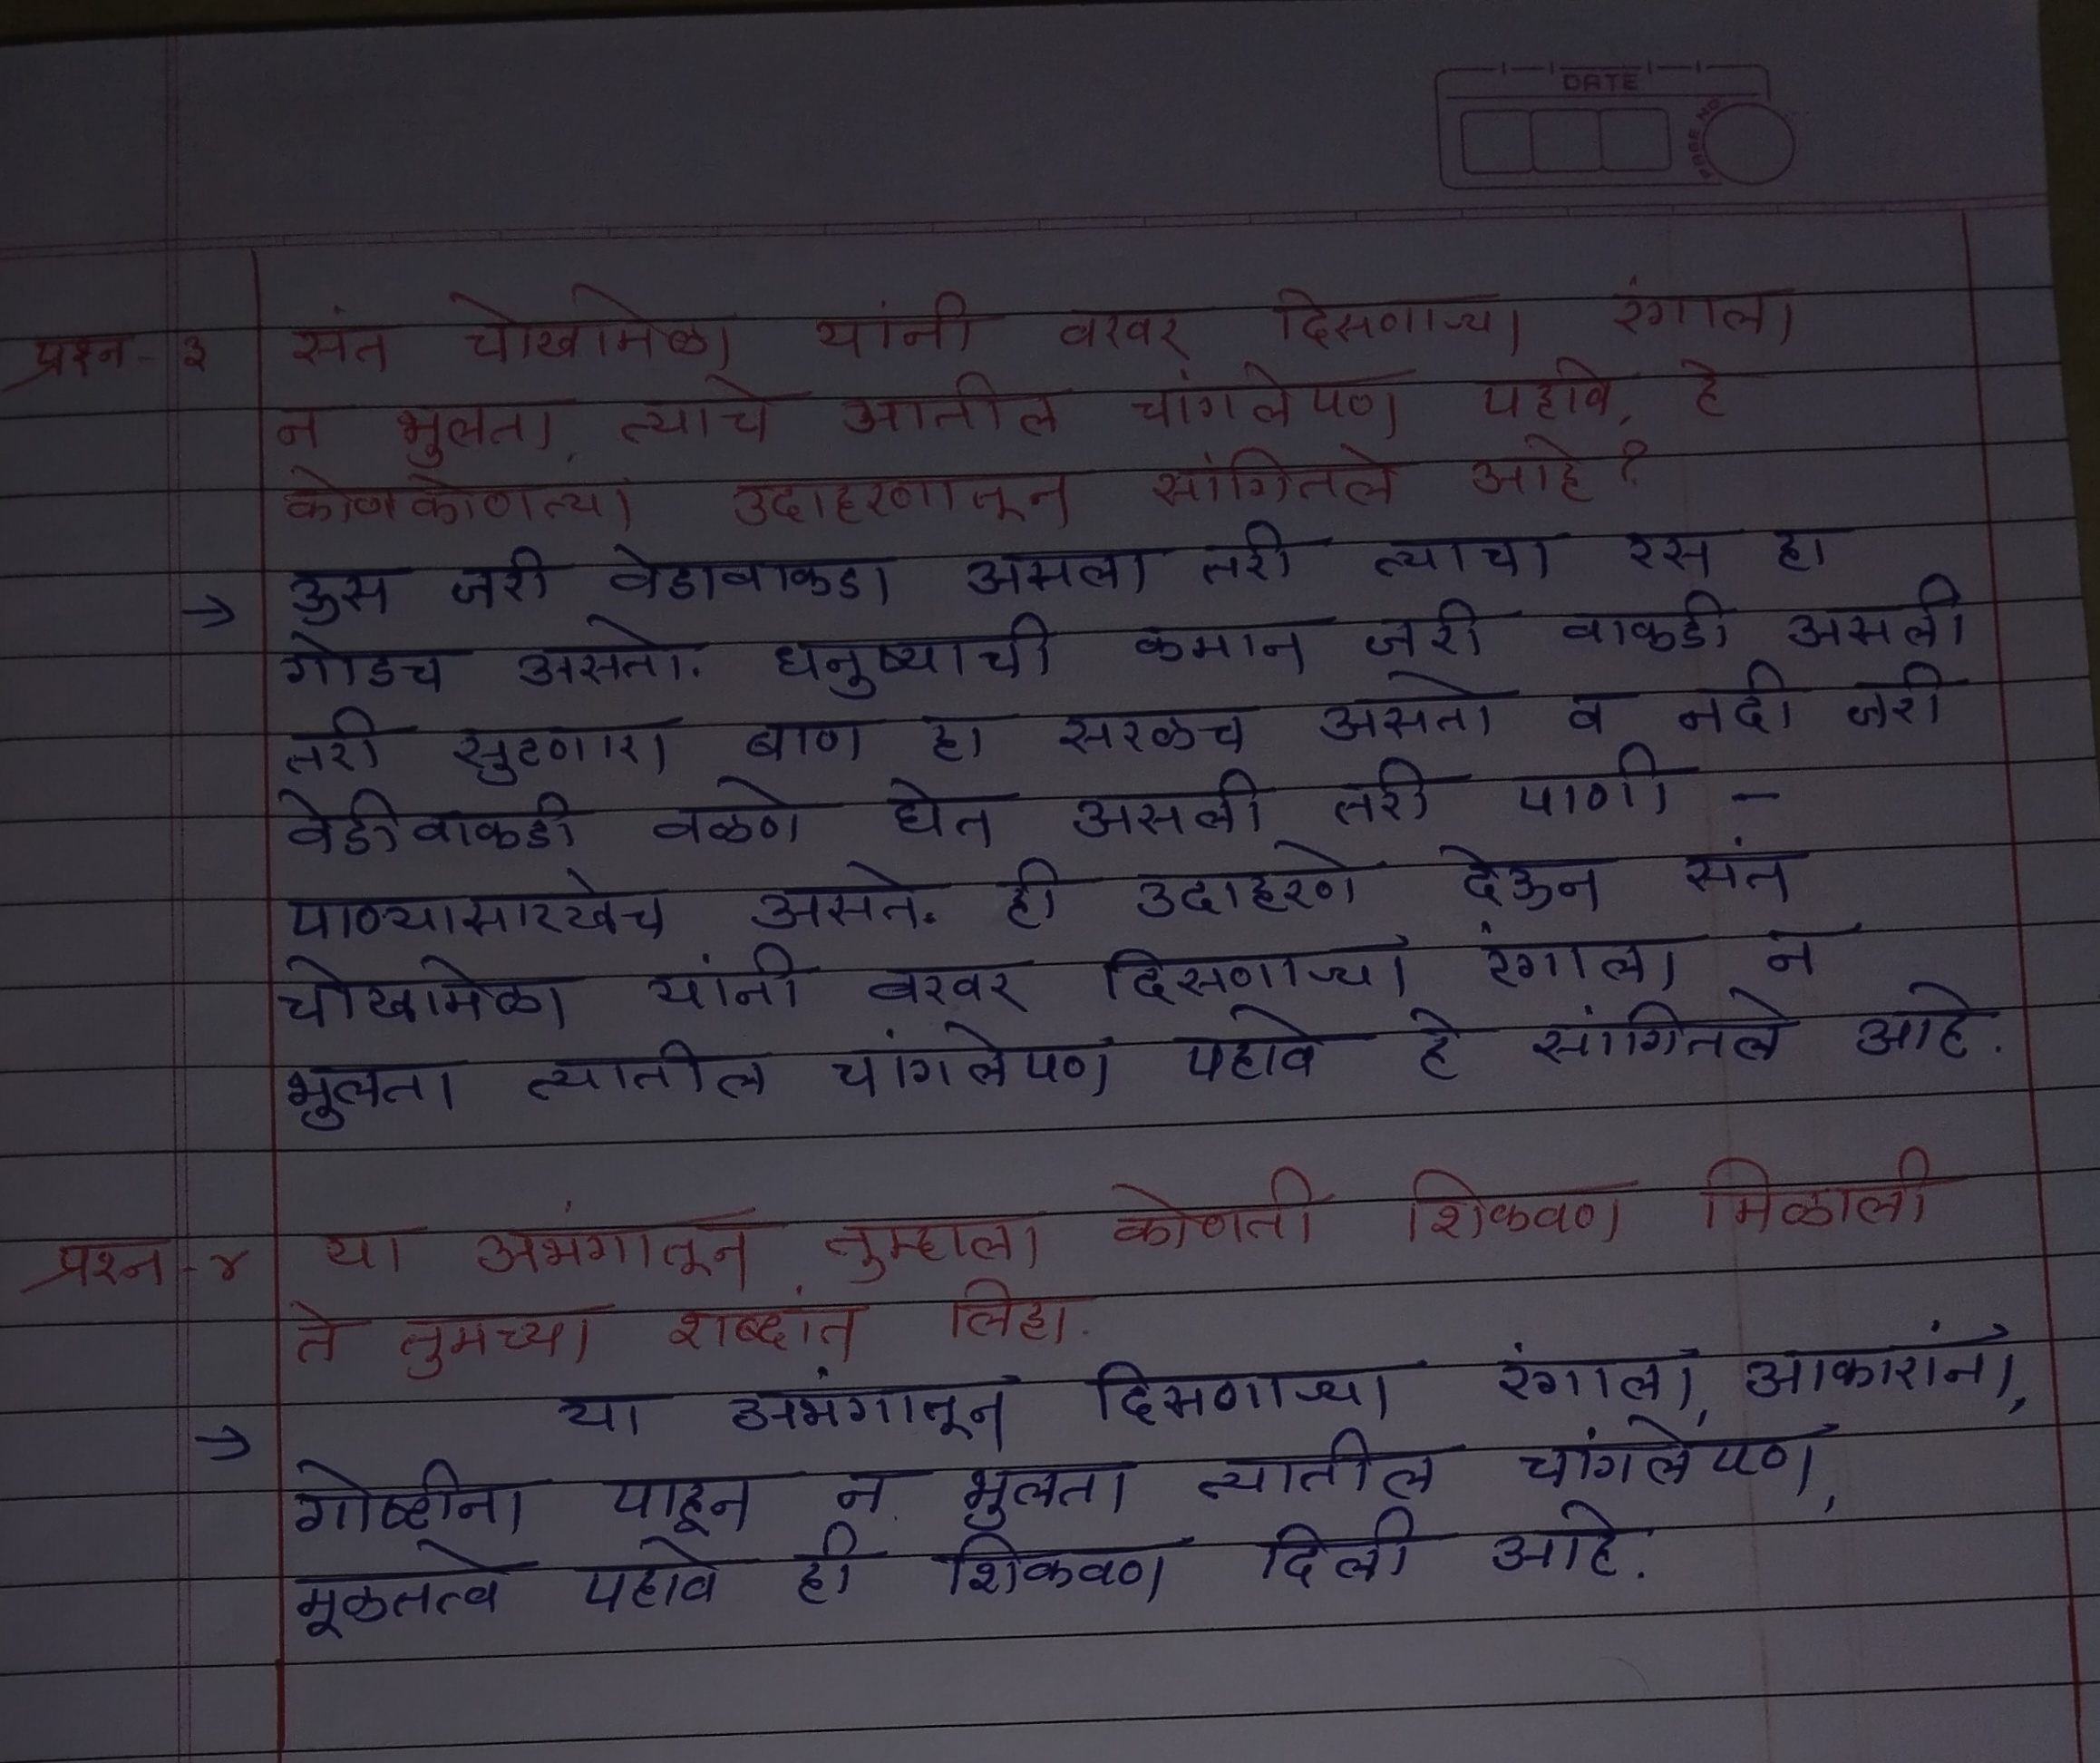 DATE
PAGE NO.
प्रश्न - ३ संत चोखामेळा यांनी वरवर दिसणाऱ्या रंगाला
न भुलता, त्याचे आतील चांगलेपण पहावे, हे
कोणकोणत्या उदाहरणातून सांगितले आहे?
→ ऊस जरी वेडावाकडा असला तरी त्याचा रस हा
गोडच असतो. धनुष्याची कमान जरी वाकडी असली
तरी सुटणारा बाण हा सरळच असतो व नदी जरी
वेडीवाकडी वळणे घेत असली तरी पाणी -
पाण्यासारखेच असते. ही उदाहरणे देऊन संत
चोखामेळा यांनी वरवर दिसणाऱ्या रंगाला न
भुलता त्यातील चांगलेपण पहावे हे सांगितले आहे.
प्रश्न - ४ या अभंगातून तुम्हाला कोणती शिकवण मिळाली
ते तुमच्या शब्दांत लिहा.
→ या अभंगातून दिसणाऱ्या रंगाला, आकारांना,
गोष्टीना पाहून न भुलता त्यातील चांगलेपण,
मूळतत्व पहावे ही शिकवण दिली आहे.